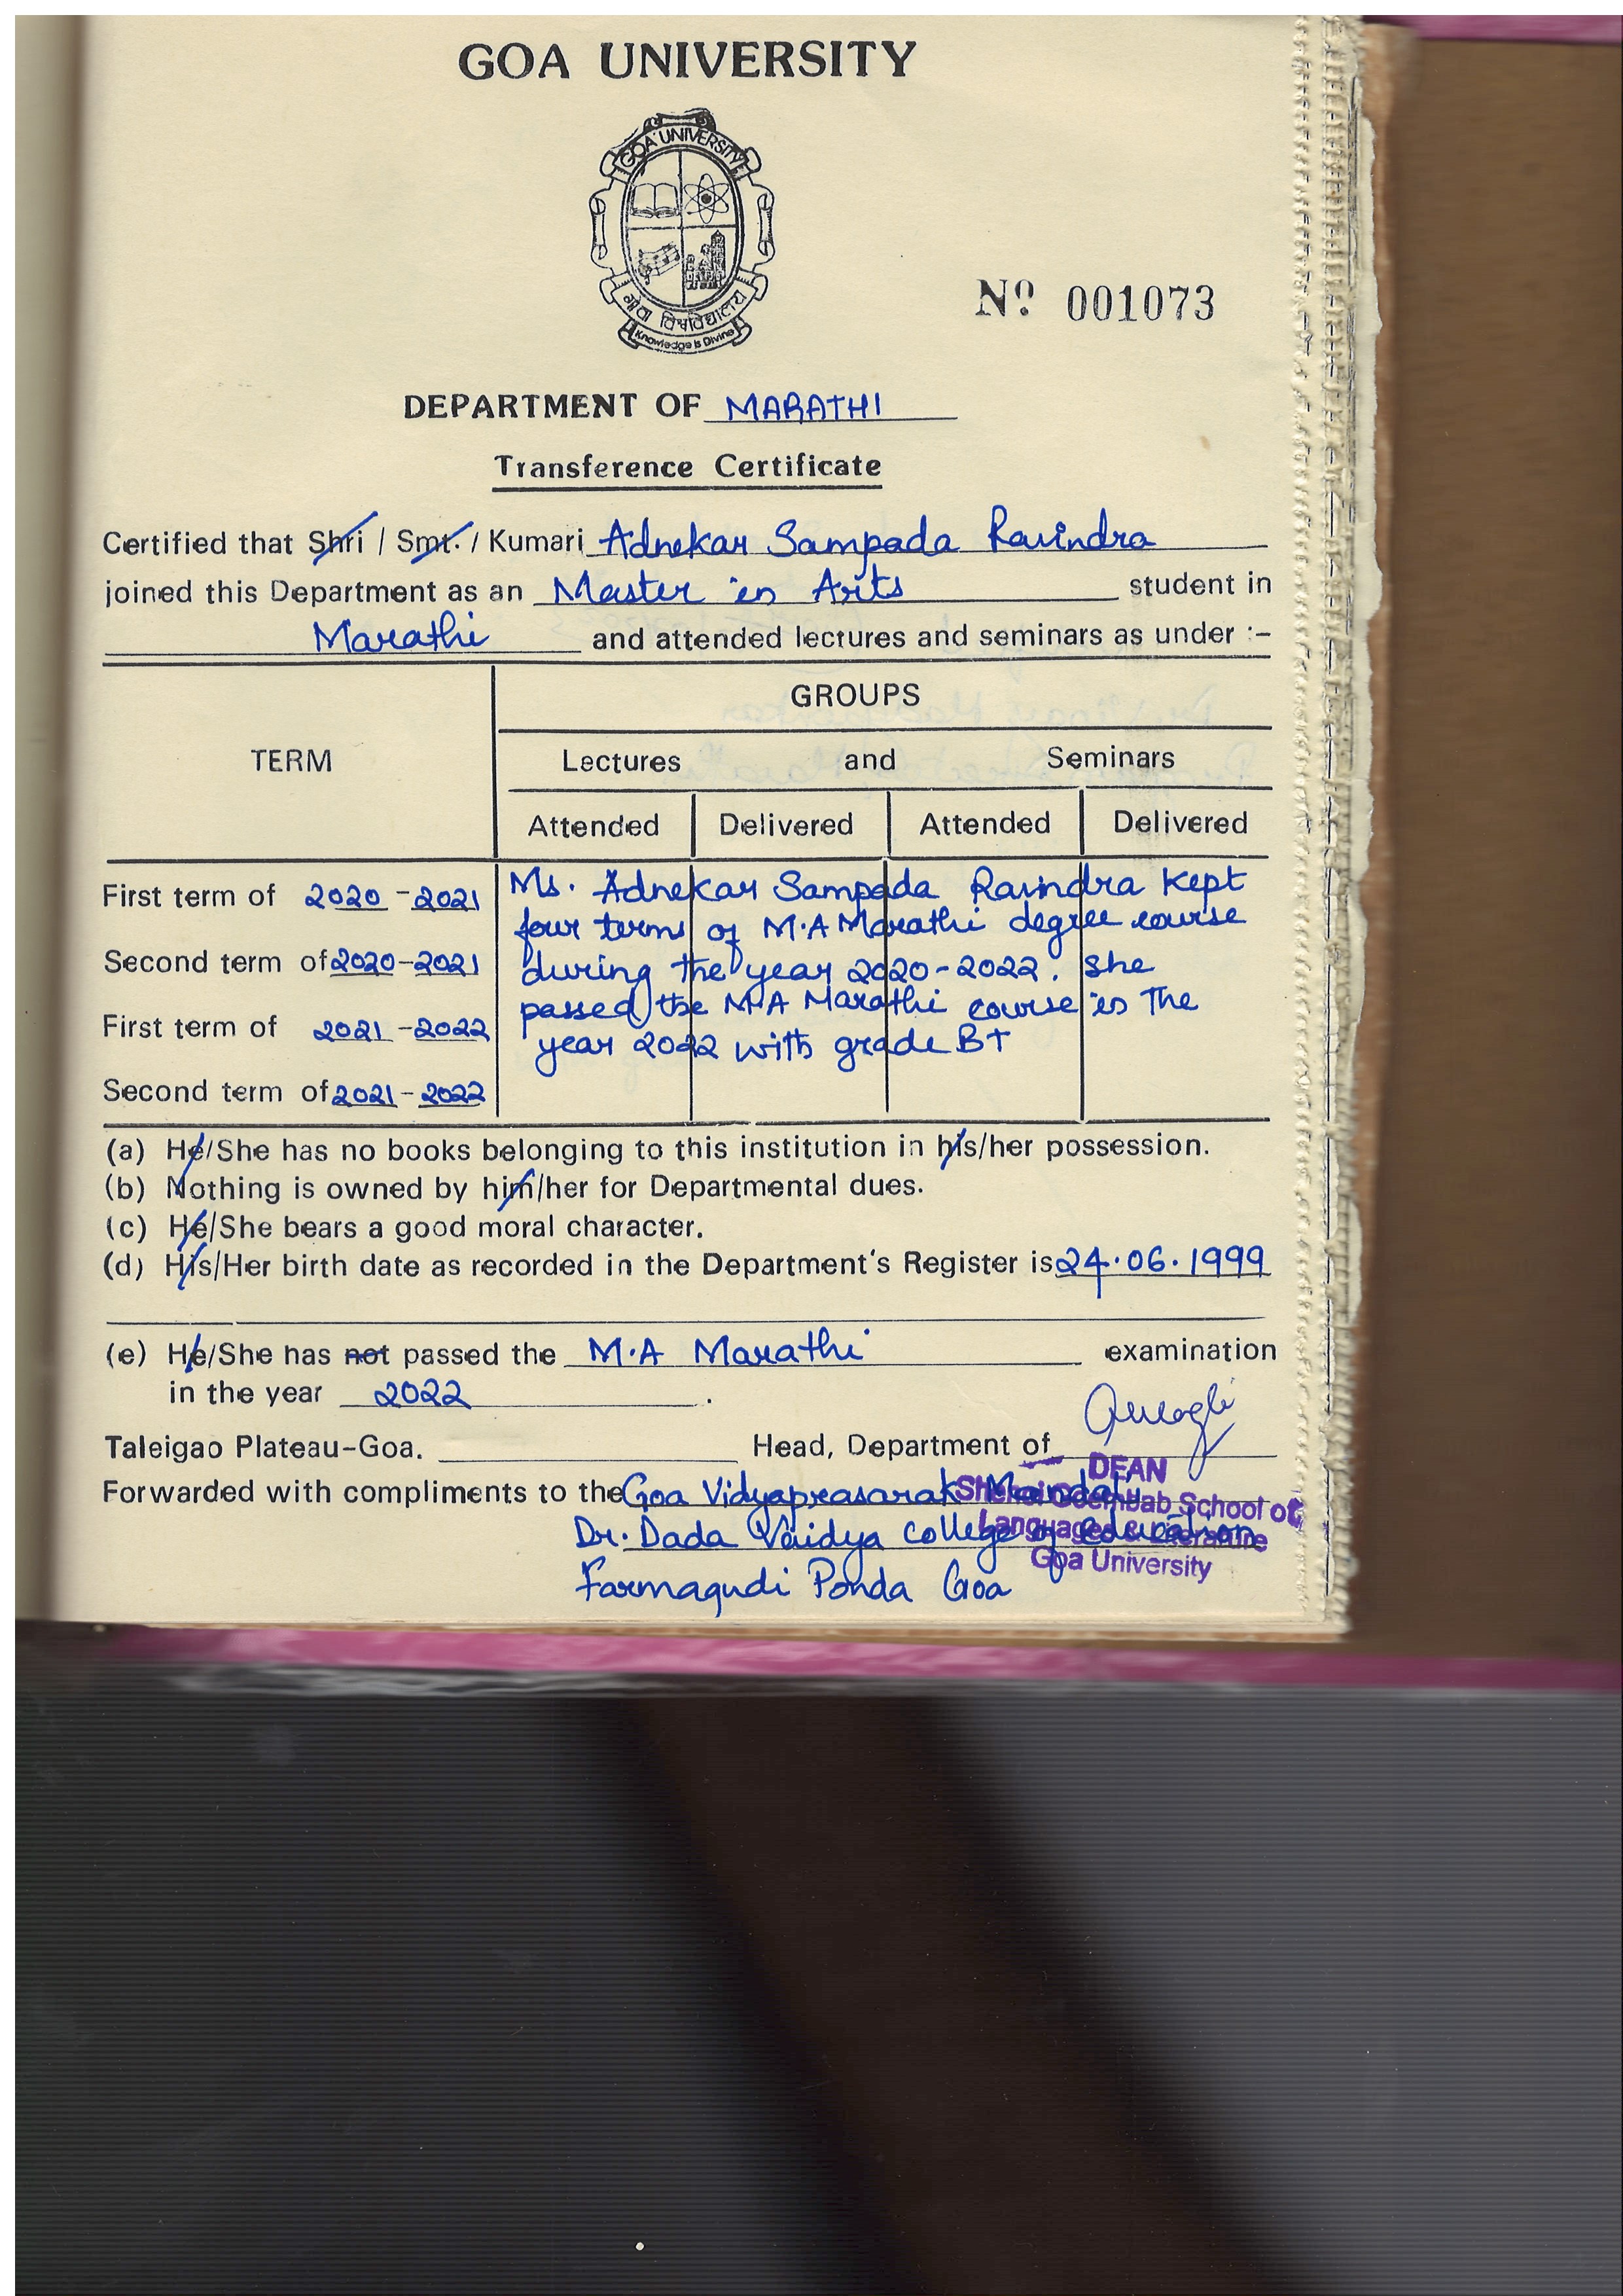 GOA UNIVERSITY
GOA UNIVERSITY
गोवा विश्वविद्यालय
Knowledge is Divine
Nº 001073
DEPARTMENT OF MARATHI
Transference Certificate
Certified that Shri / Smt. / Kumari Adnekar Sampada Ravindra
joined this Department as an Master in Arts student in
Marathi and attended lectures and seminars as under :-
GROUPS
TERM
Lectures and Seminars
Attended Delivered Attended Delivered
First term of 2020 - 2021
Second term of 2020-2021
First term of 2021 - 2022
Second term of 2021-2022
Ms. Adnekar Sampada Ravindra Kept
four terms of M.A Marathi degree course
during the year 2020-2022. She
passed the M.A Marathi course in the
year 2022 with grade B+
(a) He/She has no books belonging to this institution in his/her possession.
(b) Nothing is owned by him/her for Departmental dues.
(c) He/She bears a good moral character.
(d) His/Her birth date as recorded in the Department's Register is 24.06.1999
(e) He/She has not passed the M.A Marathi examination
in the year 2022 .
Taleigao Plateau-Goa. Head, Department of
Forwarded with compliments to the Goa Vidyaprasarak Mandal's
Dr. Dada Vaidya College of Education
Farmagudi Ponda Goa
DEAN
Shenoi Goembab School of
Languages & Literature
Goa University